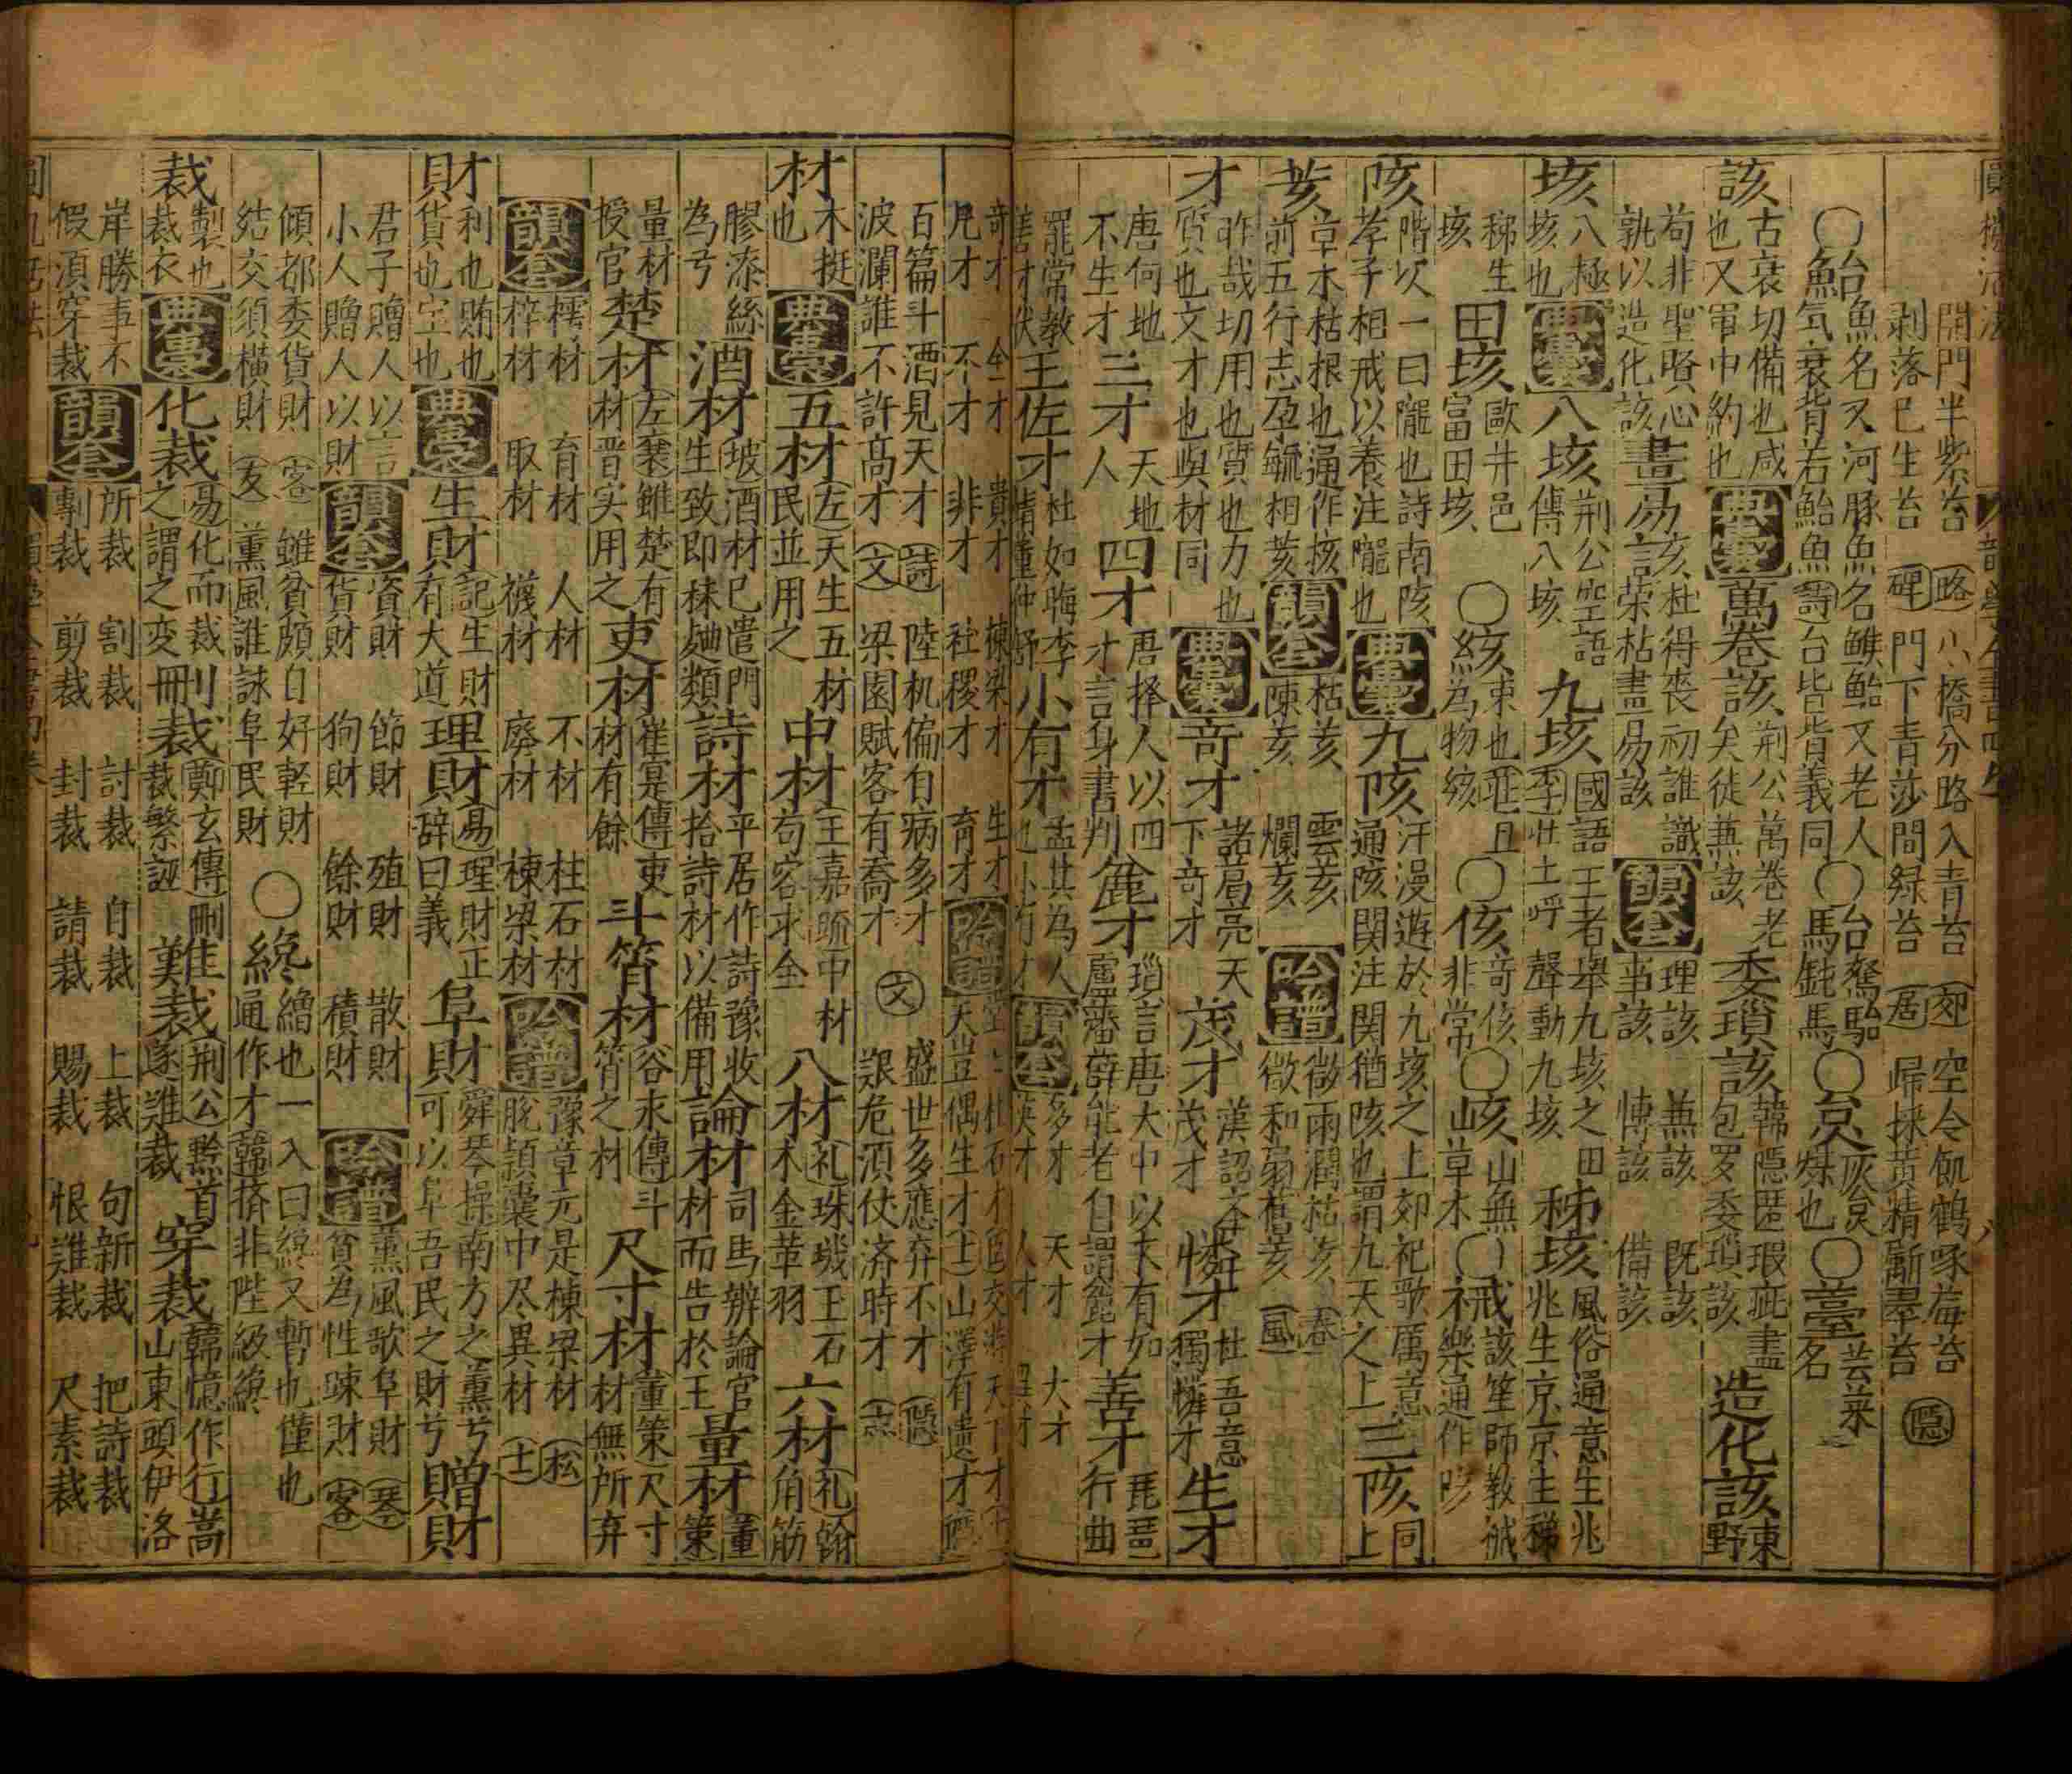 開門半紫苔 (略) 小橋分路入青苔 (郊) 空令飢鶴啄莓苔
剥落巳生苔 (碑) 門下青莎間緑苔 (居) 歸採黄精斸翠苔 (隠)
○鮐 魚名又河豚魚名鯸鮐又老人
氣衰背若鮐魚(詩)台背背義同 ○駘 駑駘
鈍馬 ○炱 灰炱
煤也 ○薹 芸菜
名
該 古衰切備也咸
也又軍中約也 典囊 萬卷該 荆公萬卷老
矣徒無該 委瑣該 韓隠匿瑕疵盡
包罗委瑣該 造化該 東
野
苟非聖賢心
孰以造化該 畫易該 杜得喪初誰識
言荣枯畫易該 韻套 理該 兼該 既該
事該 博該 備該
垓 八極
垓也 典囊 八垓 荆公空語
傳八垓 九垓 國語王者舉九垓之田
李壮士呼聲動九垓 秭垓 風俗通意生兆
兆生京京生秭
秭生
垓 田垓 歐井邑
富田垓 ○絯 束也
為物絯 ○侅 竒侅
非常 ○峐 山無
草木 ○祴 該笙師教祴
樂通作陔
陔 階以一曰隴也詩南陔
孝子相戒以養注隴也 典囊 九陔 汗漫遊於九垓之上郊祀歌厲意
通陔関注関猶陔也謂九天之上 三陔 同
上
荄 草木枯根也通作核
前五行志孕毓相荄 韻套 枯荄 雲荄
陳荄 爛荄 吟譜 微雨潤枯荄 (春)
微和弱舊荄 (風)
才 昨哉切用也質也力也
質也文才也與材同 典囊 竒才 諸葛亮天
下竒才 茂才 漢詔
茂才 憐才 杜吾意
獨憐才 生才
唐何地
不生才 三才 天地
人 四才 唐择人以四
才言身書判 麄才 瑣言唐大中以
盧羅潘薛能者自謂麄才 善才 琵琶
行曲
罷常教
善才伏 王佐才 杜如晦李
靖董仲舒 小有才 孟其為人
也小有才 韻套 多才 天才 大才
英才 人才
竒才 全才 貴才 棟梁才 生才
凡才 不才 非才 社稷才 育才 吟譜
天豈偶生才 (士) 山澤有遺才
百篇斗酒見天才 (詩) 陸机偏自病多才 (文) 盛世多應弃不才 (隠)
波瀾誰不許髙才 (文) 梁園賦客有喬才 艱危須仗济時才
材 木挺
也 典囊 五材 (左)天生五材
民並用之 中材 (王嘉疏)中材
苟容求全 八材 (礼)珠㺬玉石
木金革羽 六材 (礼)
角筋
膠漆絲
為亏 酒材 坡酒材巳遣門
生致即秣麯類 詩材 平居作詩豫收
拾詩材以備用 論材 司馬辨論官
材而告於王 量材 (董
策)
量材
授官 楚材 (左襄)雖楚有
材晋实用之 吏材 (崔寔傳)吏
材有餘 斗筲材 (谷永傳)斗
筲之材 尺寸材 (董策)尺寸
材無所弃
韻套 樗材 育材 人材 不材 柱石材
梓材 取材 襪材 廢材 棟梁材 吟譜 豫章元是棟梁材 (松)
脫頴囊中尽異材 (士)
財 利也賄也
貨也宝也 典囊 生財 (記)生財
有大道 理財 (易)理財正
辭曰義 阜財 舜琴操南方之薰兮
可以阜吾民之財兮 贈財
君子贈人以言
小人贈人以財 韻套 資財 節財 殖財 散財
貨財 狥財 餘財 積財 吟譜 薰風歌阜財 (琴)
貧為性踈財 (客)
傾都委貨財 (客) 雖貧頗自好軽財
結交須横財 (友) 薫風誰詠阜民財 ○纔 繒也一入曰纔又暫也僅也
通作才韓擠非陛級纔
裁 製也
裁衣 典囊 化裁 (易)化而裁
之謂之变 刪裁 (鄭玄傳)刪
裁繁誣 難裁 荆公黔首
遂難裁 穿裁 韓憶作行嵩
山東頭伊洛
岸勝事不
假須穿裁 韻套 所裁 割裁 討裁 自裁 上裁 句新裁 把詩裁
剸裁 剪裁 封裁 請裁 賜裁 恨難裁 尺素裁